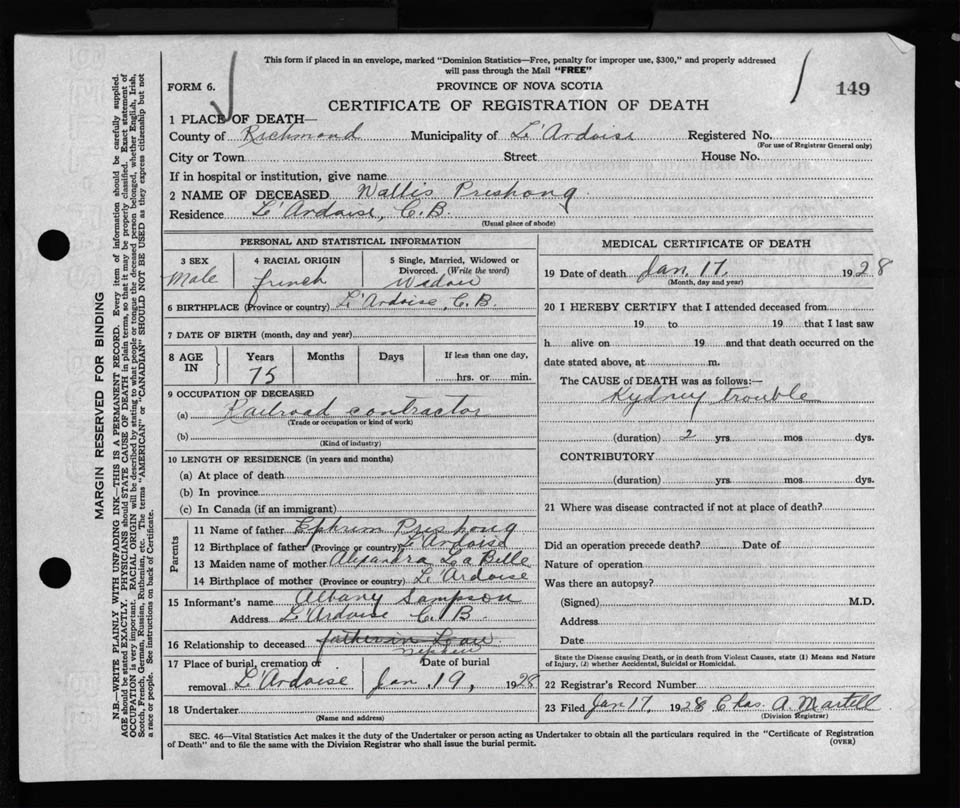 This form if placed in an envelope, marked "Dominion Statistics—Free, penalty for improper use, $300," and properly addressed
will pass through the Mail "FREE"
FORM 6.
PROVINCE OF NOVA SCOTIA
149
CERTIFICATE OF REGISTRATION OF DEATH
1 PLACE OF DEATH—
County of Richmond Municipality of L'Ardoise Registered No.
(For use of Registrar General only)
City or Town Street House No.
If in hospital or institution, give name
2 NAME OF DECEASED Wallis Preshong
Residence L'Ardoise, C.B.
(Usual place of abode)
PERSONAL AND STATISTICAL INFORMATION
3 SEX
Male
4 RACIAL ORIGIN
french
5 Single, Married, Widowed or
Divorced. (Write the word)
Widow
6 BIRTHPLACE (Province or country) L'Ardoise, C.B.
7 DATE OF BIRTH (month, day and year)
8 AGE IN
Years Months Days
If less than one day,
hrs. or min.
75
9 OCCUPATION OF DECEASED
(a) Railroad contractor
(Trade or occupation or kind of work)
(b)
(Kind of industry)
10 LENGTH OF RESIDENCE (in years and months)
(a) At place of death
(b) In province
(c) In Canada (if an immigrant)
Parents
11 Name of father Ephrim Preshong
12 Birthplace of father (Province or country) L'Ardoise
13 Maiden name of mother Alexandra La Pelle
14 Birthplace of mother (Province or country) L'Ardoise
15 Informant's name Albany Sampson
Address L'Ardoise C.B.
16 Relationship to deceased father in Law
nephew
17 Place of burial, cremation or
removal L'Ardoise
Date of burial
Jan. 19, 1928
18 Undertaker
(Name and address)
MEDICAL CERTIFICATE OF DEATH
19 Date of death Jan. 17, 1928
(Month, day and year)
20 I HEREBY CERTIFY that I attended deceased from
19 to 19 that I last saw
h alive on 19 and that death occurred on the
date stated above, at m.
The CAUSE of DEATH was as follows:—
Kydney trouble
(duration) 2 yrs. mos dys.
CONTRIBUTORY
(duration) yrs mos dys.
21 Where was disease contracted if not at place of death?
Did an operation precede death? Date of
Nature of operation
Was there an autopsy?
(Signed) M.D.
Address
Date
State the Disease causing Death, or in death from Violent Causes, state (1) Means and Nature
of Injury, (2) whether Accidental, Suicidal or Homicidal.
22 Registrar's Record Number
23 Filed Jan 17, 1928 Chas. A. Martell
(Division Registrar)
SEC. 46—Vital Statistics Act makes it the duty of the Undertaker or person acting as Undertaker to obtain all the particulars required in the "Certificate of Registration
of Death" and to file the same with the Division Registrar who shall issue the burial permit.
(OVER)
MARGIN RESERVED FOR BINDING
N.B.—WRITE PLAINLY WITH UNFADING INK—THIS IS A PERMANENT RECORD. Every item of information should be carefully supplied.
AGE should be stated EXACTLY. PHYSICIANS should STATE CAUSE OF DEATH in plain terms, so that it may be properly classified. Exact statement of
OCCUPATION is very important. RACIAL ORIGIN will be described by stating to what people or tongue the deceased person belonged, whether English, Irish,
Scotch, French, German, Russian, Ruthenian, etc. The terms "AMERICAN" or "CANADIAN" SHOULD NOT BE USED as they express citizenship but not
a race or people. See instructions on back of Certificate.